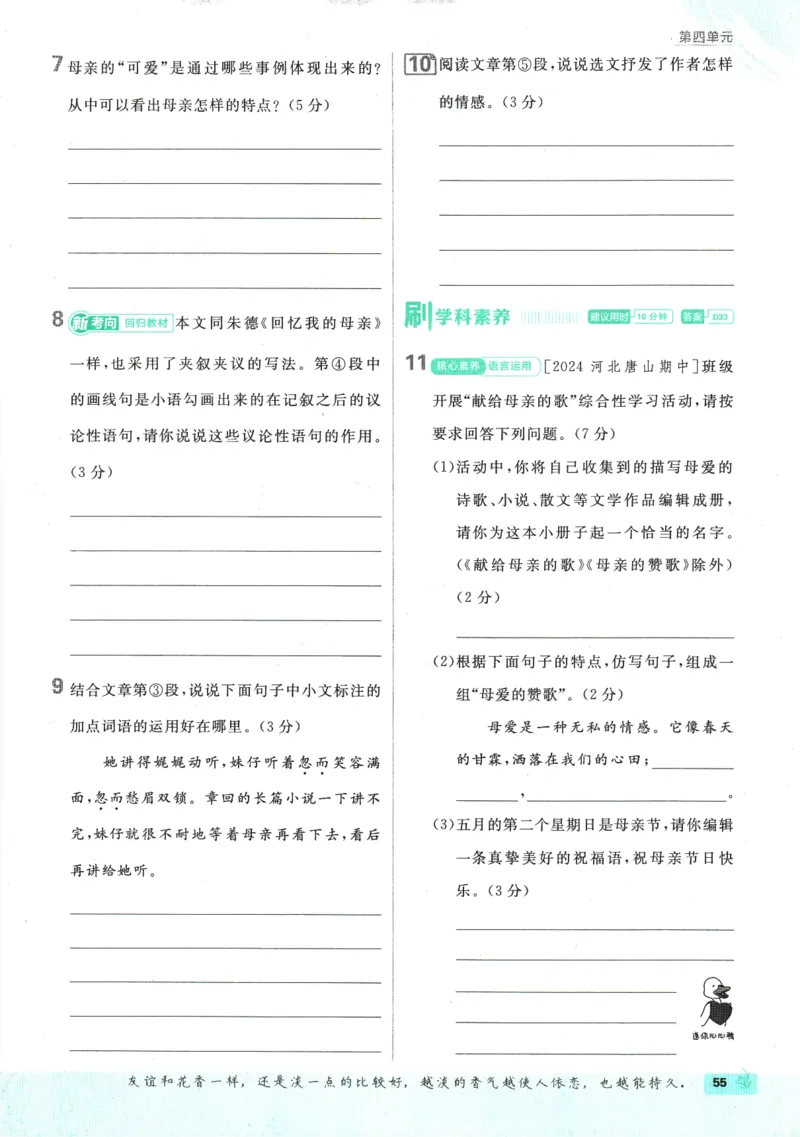 第四单元
7 母亲的“可爱”是通过哪些事例体现出来的?
从中可以看出母亲怎样的特点?(5分)
8 新考向 回归教材 本文同朱德《回忆我的母亲》
一样,也采用了夹叙夹议的写法。第④段中
的画线句是小语勾画出来的在记叙之后的议
论性语句,请你说说这些议论性语句的作用。
(3分)
9 结合文章第③段,说说下面句子中小文标注的
加点词语的运用好在哪里。(3分)
她讲得娓娓动听,妹仔听着忽而笑容满
面,忽而愁眉双锁。章回的长篇小说一下讲不
完,妹仔就很不耐地等着母亲再看下去,看后
再讲给她听。
10 阅读文章第⑤段,说说选文抒发了作者怎样
的情感。(3分)
刷 学科素养 建议用时 10分钟 答案 D33
11 核心素养 语言运用 [2024 河北唐山期中]班级
开展“献给母亲的歌”综合性学习活动,请按
要求回答下列问题。(7分)
(1)活动中,你将自己收集到的描写母爱的
诗歌、小说、散文等文学作品编辑成册,
请你为这本小册子起一个恰当的名字。
(《献给母亲的歌》《母亲的赞歌》除外)
(2分)
(2)根据下面句子的特点,仿写句子,组成一
组“母爱的赞歌”。(2分)
母爱是一种无私的情感。它像春天
的甘霖,洒落在我们的心田;
,。
(3)五月的第二个星期日是母亲节,请你编辑
一条真挚美好的祝福语,祝母亲节日快
乐。(3分)
送你心心鸭
友谊和花香一样,还是淡一点的比较好,越淡的香气越使人依恋,也越能持久。 55